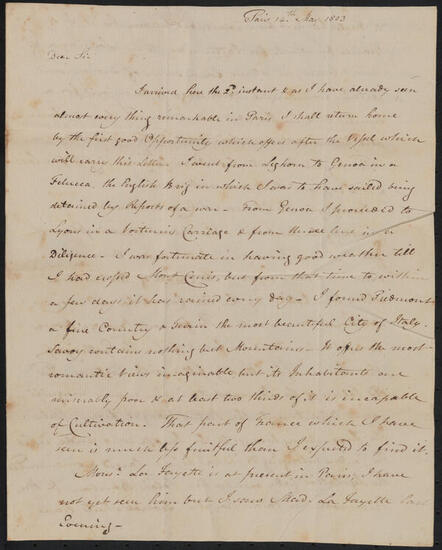 Paris 14th May 1803
Dear Sir
I arrived here the 2d instant & as I have already seen
almost every thing remarkable in Paris I shall return home
by the first good Opportunity which offers after the Vessel which
will carry this Letter. I went from Leghorn to Genoa in a
Felucca, the English Brig in which I was to have sailed being
detained by Reports of a war – From Genoa I proceeded to
Lyons in a Vorturin's Carriage & from thence here in a
Diligence – I was fortunate in having good weather till
I had crossed Mont Cenis, but from that time to within
a few days it has rained every day – I found Piedmont
a fine Country & Turin the most beautiful City of Italy.
Savoy contains nothing but Mountains – It offers the most
romantic Views imaginable but its Inhabitants are
miserably poor & at least two thirds of it is incapable
of Cultivation. That part of France which I have
seen is much less fruitful than I expected to find it.
Monsr La Fayette is at present in Paris, I have
not yet seen him but I saw Mad. La Fayette last
Evening –